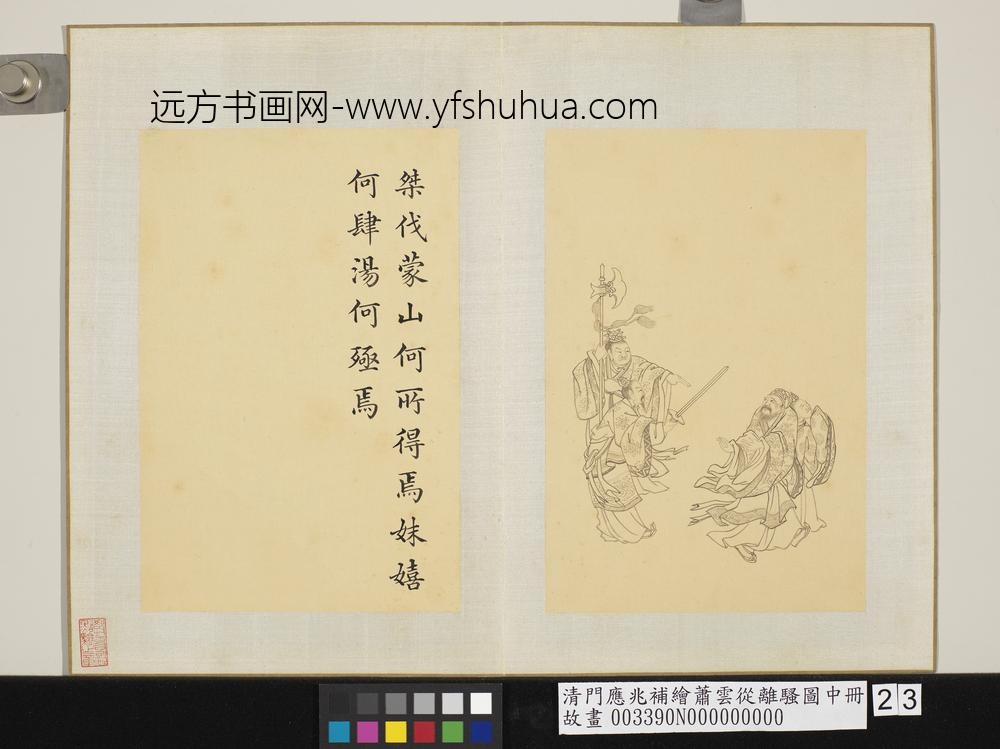 远方书画网-www.yfshuhua.com
桀伐蒙山何所得焉妹嬉
何肆湯何殛焉
清門應兆補繪蕭雲從離騷圖中冊
故畫 003390N000000000
23